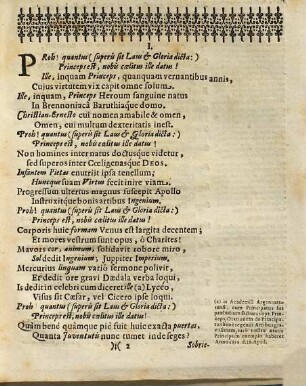 I.
PRoh! quantus (superû sit Laus & Gloria dicta!)
Princeps est, nobis cœlitus ille datus!
Ille, inquam Princeps, quanquam vernantibus annis,
Cujus virtutem vix capit omne solum.
Ille, inquam, Princeps Heroum sanguine natus
In Brennoniacâ Baruthiaque domo.
Christian-Ernesto cui nomen amabile & omen,
Omen, cui multum dexteritatis inest.
Proh! quantus (superû sit Laus & Gloria dicta!)
Princeps est, nobis cœlitus ille datus!
Non homines inter natos doctusque videtur,
sed superos inter Cœligenasque DEOS.
Infantem Pietas enutriit ipsa tenellum;
Huncque suam Virtus fecit inire viam.
Progressum ulterius magnus suscepit Apollo
Instruxitque bonis artibus Ingenium.
Proh! quantus (superû sit Laus & Gloria dicta!)
Princeps est, nobis cœlitus ille datus!
Corporis huic formam Venus est largita decentem;
Et mores vestrum sunt opus, ô Charites!
Mavors cor, animum, solidavit robore miro,
Sol dedit Ingenium; Juppiter Imperium,
Mercurius linguam vario sermone polivit,
Et dedit ore gravi Dædala verba loqui,
Is dedit in celebri cum diceret ille (a) Lyceo,
Visus sit Cæsar, vel Cicero ipse loqui.
Proh! quantus (superû sit Laus & Gloria dicta!)
Princeps est, nobis cœlitus ille datus!
Quàm benè quámque piè sit huic exacta puertas,
Quanta Juventuti nunc tumet indè seges?
(a) in Academiâ Argentoratensi,
)( 2
Sobrie-